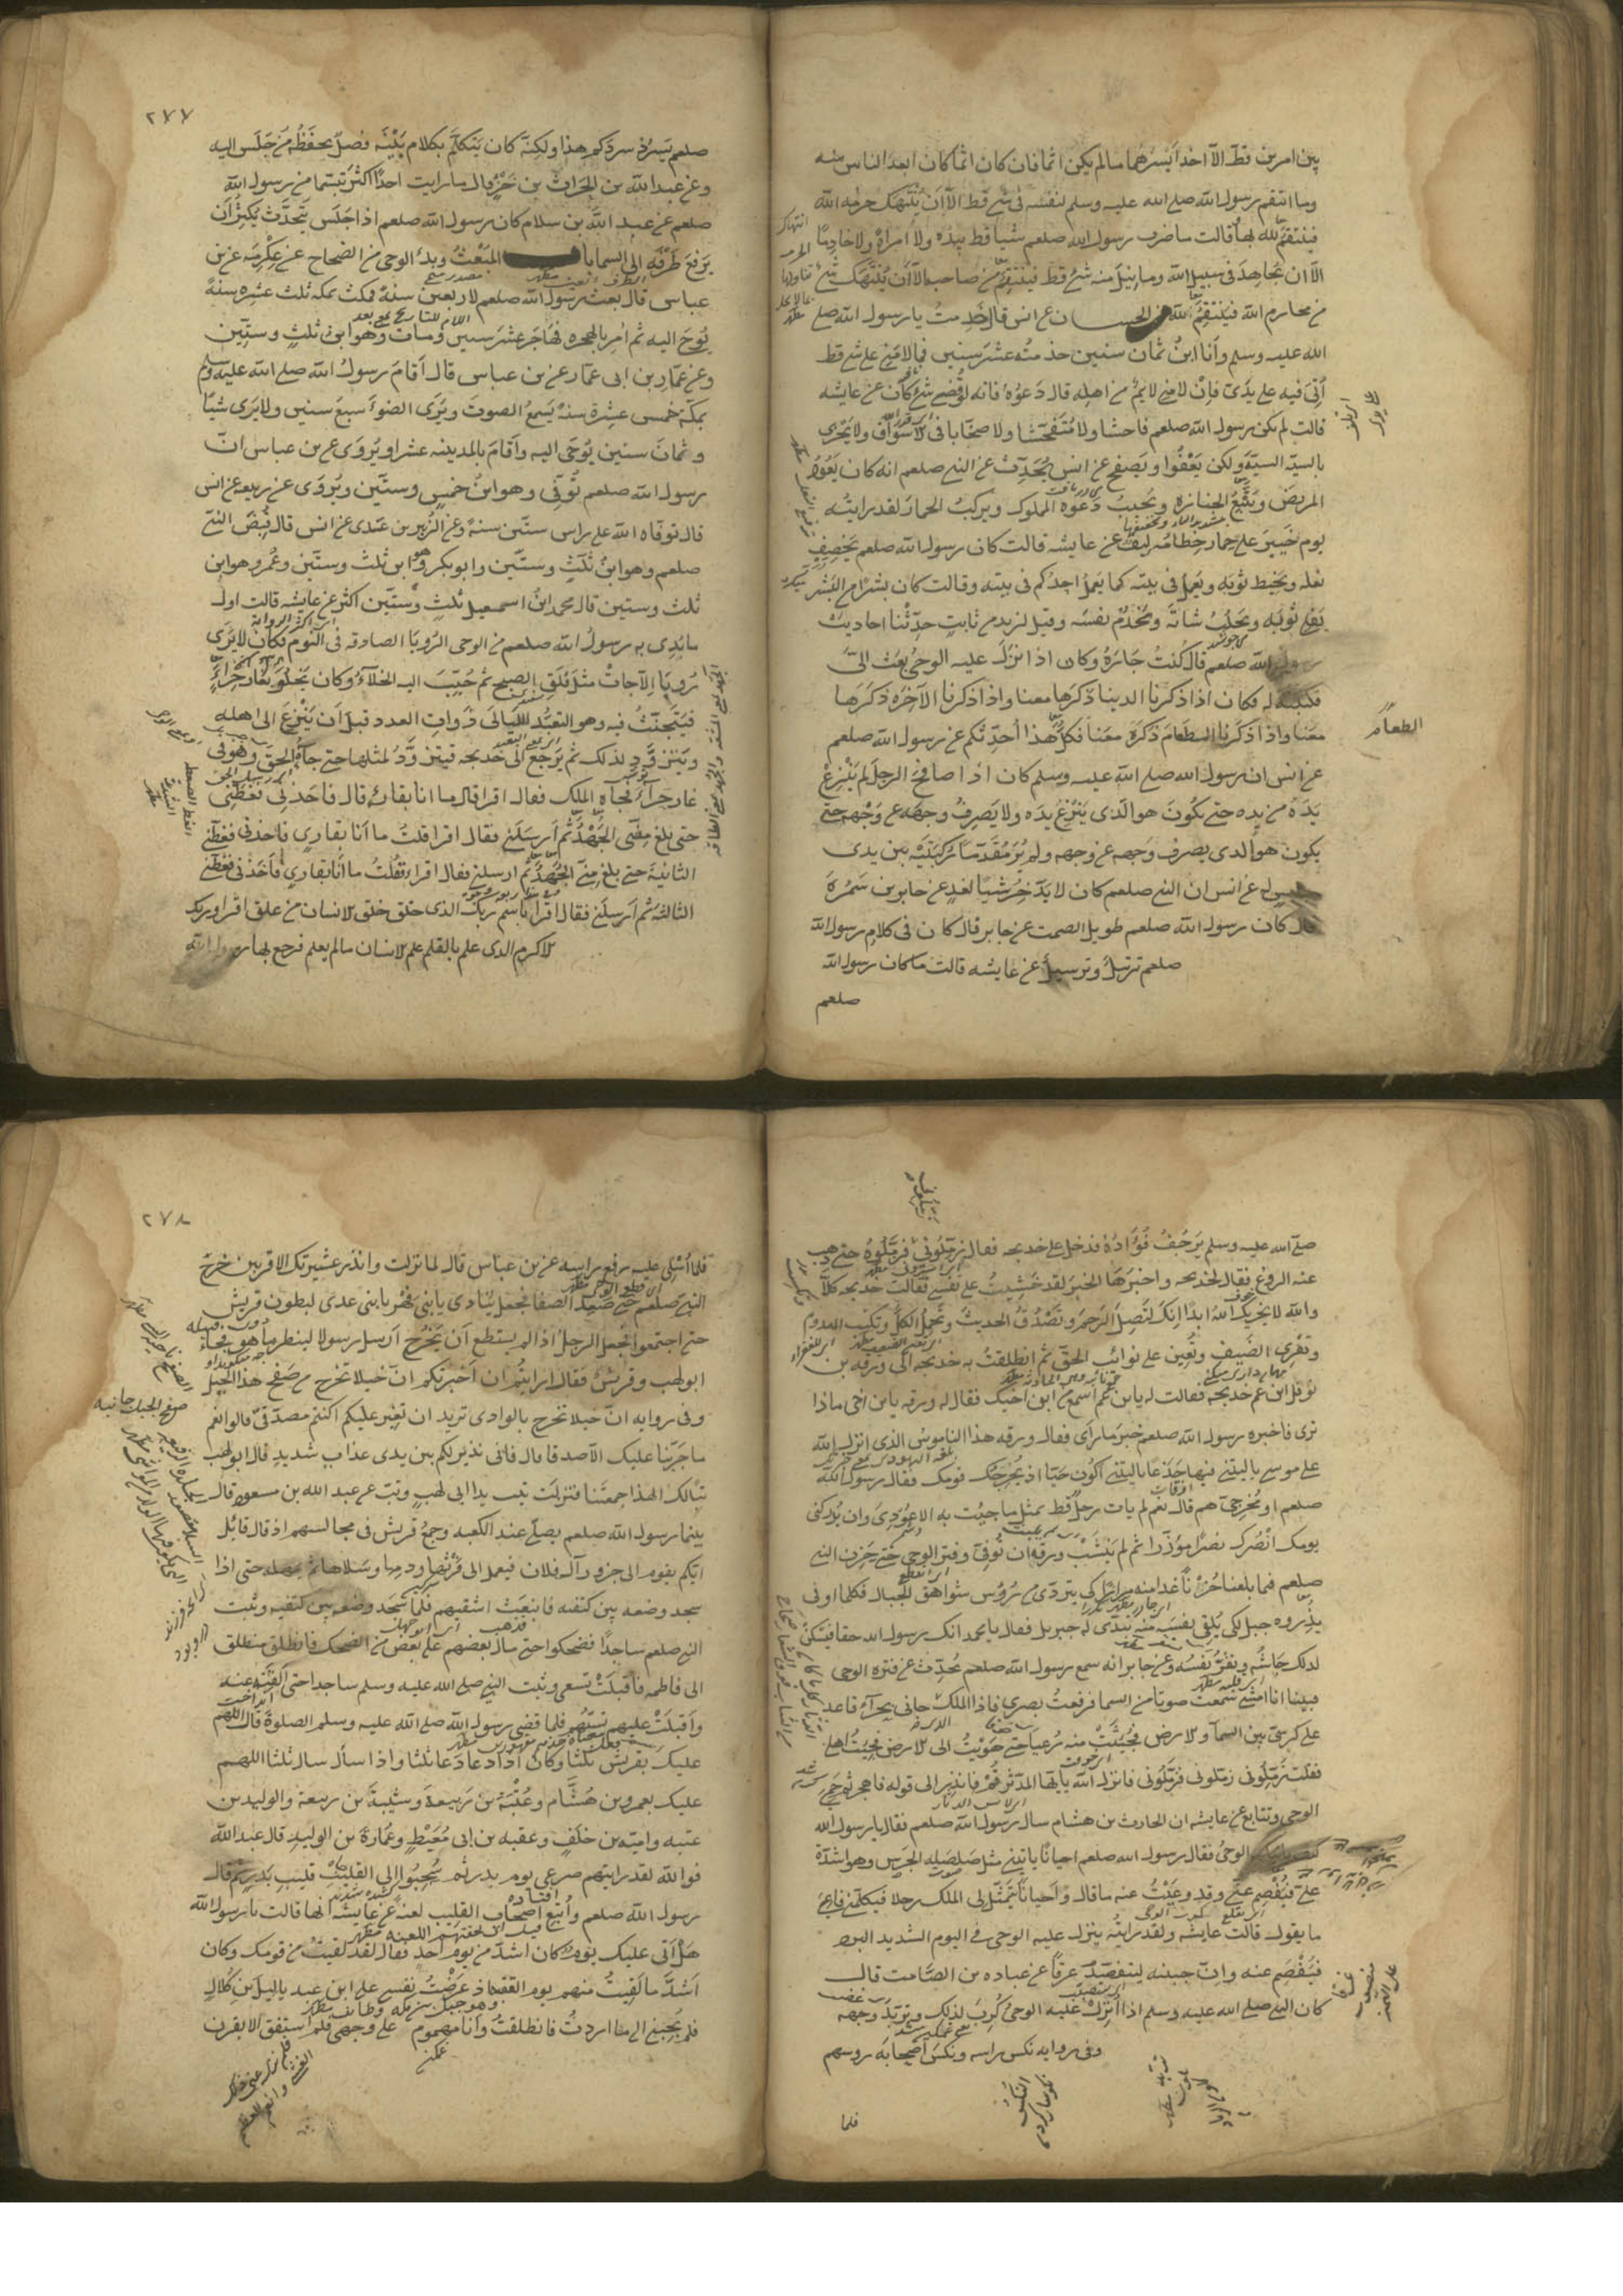 بين امرين قط الا اخذ ايسرهما ما لم يكن اثما فان كان اثما كان ابعد الناس منه
وما انتقم رسول الله صلى الله عليه وسلم لنفسه في شئ قط الا ان ينتهك حرمة الله
فينتقم لله بها قالت ما ضرب رسول الله صلعم شيا قط بيده ولا امراة ولا خادما
الا ان يجاهد في سبيل الله وما نيل منه شئ قط فينتقم من صاحبه الا ان ينتهك شئ
من محارم الله فينتقم لله من الحسان عن انس قال خدمت يا رسول الله صلى
الله عليه وسلم وانا ابن ثمان سنين خدمته عشر سنين فما لامني على شئ قط
اتى فيه على يدي فان لامني لايم من اهله قال دعوه فانه لو قضي شئ كان عن عايشه
قالت لم يكن رسول الله صلعم فاحشا ولا متفحشا ولا صخابا في الاسواق ولا يجزي
بالسيئة السيئة ولكن يعفوا ويصفح عن انس يحدث عن النبي صلعم انه كان يعود
المريض ويتبع الجنازة ويجيب دعوة المملوك ويركب الحمار لقد رايته
يوم خيبر على حمار خطامه ليف عن عايشه قالت كان رسول الله صلعم يخصف
نعله ويخيط ثوبه ويعمل في بيته كما يعمل احدكم في بيته وقالت كان بشرا من البشر
يفلي ثوبه ويحلب شاته ويخدم نفسه وقيل لزيد بن ثابت حدثنا احاديث
رسول الله صلعم قال كنت جاره وكان اذا نزل عليه الوحي بعث الي
فكتبته له فكان اذا ذكرنا الدنيا ذكرها معنا واذا ذكرنا الآخرة ذكرها
معنا واذا ذكرنا الطعام ذكره معنا فكل هذا احدثكم عن رسول الله صلعم
عن انس ان رسول الله صلى الله عليه وسلم كان اذا صافح الرجل لم ينزع
يده من يده حتى يكون هو الذي ينزع يده ولا يصرف وجهه عن وجهه حتى
يكون هو الذي يصرف وجهه عن وجهه ولم ير مقدما ركبتيه بين يدي
جليس له عن انس ان النبي صلعم كان لا يدخر شيا لغد عن جابر بن سمرة
قال كان رسول الله صلعم طويل الصمت عن جابر قال كان في كلام رسول الله
صلعم ترتيل وترسيل عن عايشه قالت ما كان رسول الله
صلعم
الطعام
٢٧٧
صلعم يسرد سردكم هذا ولكنه كان يتكلم بكلام بينه فصل يحفظه من جلس اليه
وعن عبد الله بن الحارث بن جزء قال ما رايت احدا اكثر تبسما من رسول الله
صلعم عن عبد الله بن سلام كان رسول الله صلعم اذا جلس يتحدث يكثر ان
يرفع طرفه الى السما باب المبعث وبدء الوحي من الصحاح عن عكرمه عن بن
عباس قال بعث رسول الله صلعم لاربعين سنة فمكث بمكه ثلث عشره سنة
يوحى اليه ثم امر بالهجره فهاجر عشر سنين ومات وهو ابن ثلث وستين
وعن عمار بن ابي عمار عن بن عباس قال اقام رسول الله صلى الله عليه وسلم
بمكة خمس عشرة سنة يسمع الصوت ويرى الضوء سبع سنين ولا يرى شيا
وثمان سنين يوحى اليه واقام بالمدينه عشرا ويروى عن بن عباس ان
رسول الله صلعم توفي وهو ابن خمس وستين ويروى عن ربيعه عن انس
قال توفاه الله على راس ستين سنة وعن الزبير بن عدي عن انس قال قبض النبي
صلعم وهو ابن ثلث وستين وابو بكر وهو ابن ثلث وستين وعمر وهو ابن
ثلث وستين قال محمد ابن اسمعيل ثلث وستين اكثر عن عايشه قالت اول
ما بدي به رسول الله صلعم من الوحي الرويا الصادقه في النوم فكان لا يرى
رويا الا جات مثل فلق الصبح ثم حبب اليه الخلاء وكان يخلو بغار حراء
فيتحنث فيه وهو التعبد الليالي ذوات العدد قبل ان ينزع الى اهله
ويتزود لذلك ثم يرجع الى خديجه فيتزود لمثلها حتى جاءه الحق وهو في
غار حراء فجاه الملك فقال اقرا قال ما انا بقارئ قال فاخذني فغطني
حتى بلغ مني الجهد ثم ارسلني فقال اقرا قلت ما انا بقاري فاخذني فغطني
الثانية حتى بلغ مني الجهد ثم ارسلني فقال اقرا فقلت ما انا بقاري فاخذني فغطني
الثالثة ثم ارسلني فقال اقرا باسم ربك الذي خلق خلق الانسان من علق اقرا وربك
الاكرم الذي علم بالقلم علم الانسان ما لم يعلم فرجع بها رسول الله
صلى الله عليه وسلم يرجف فؤاده فدخل على خديجه فقال زملوني فزملوه حتى ذهب
عنه الروع فقال لخديجه واخبرها الخبر لقد خشيت على نفسي فقالت خديجه كلا
والله لا يخزيك الله ابدا انك لتصل الرحم وتصدق الحديث وتحمل الكل وتكسب المعدوم
وتقري الضيف وتعين على نوائب الحق ثم انطلقت به خديجه الى ورقه بن
نوفل ابن عم خديجه فقالت له يابن عم اسمع من ابن اخيك فقال له ورقه يابن اخي ماذا
ترى فاخبره رسول الله صلعم خبر ما راى فقال ورقه هذا الناموس الذي انزل الله
على موسى يا ليتني فيها جذعا يا ليتني اكون حيا اذ يخرجك قومك فقال رسول الله
صلعم او مخرجي هم قال نعم لم يات رجل قط بمثل ما جئت به الا عودي وان يدركني
يومك انصرك نصرا موزرا ثم لم ينشب ورقه ان توفي وفتر الوحي حتى حزن النبي
صلعم فيما بلغنا حزنا غدا منه مرارا كي يتردى من رؤس شواهق الجبال فكلما اوفى
بذروه جبل لكي يلقي نفسه منه تبدى له جبريل فقال يا محمد انك رسول الله حقا فيسكن
لذلك جاشه وتقر نفسه وعن جابر انه سمع رسول الله صلعم يحدث عن فتره الوحي
فبينا انا امشي سمعت صوتا من السما فرفعت بصري فاذا الملك جاني بحراء قاعد
على كرسي بين السما والارض فجئثت منه رعبا حتى هويت الى الارض فجئت اهلي
فقلت زملوني زملوني فزملوني فانزل الله يايها المدثر قم فانذر الى قوله فاهجر ثم حمي
الوحي وتتابع عن عايشه ان الحارث بن هشام سال رسول الله صلعم فقال يا رسول الله
كيف ياتيك الوحي فقال رسول الله صلعم احيانا ياتيني مثل صلصله الجرس وهو اشده
علي فيفصم عني وقد وعيت عنه ما قال واحيانا يتمثل لي الملك رجلا فيكلمني فاعي
ما يقول قالت عايشه ولقد رايته ينزل عليه الوحي في اليوم الشديد البرد
فيفصم عنه وان جبينه ليتفصد عرقا عن عباده بن الصامت قال
كان النبي صلى الله عليه وسلم اذا انزل عليه الوحي كرب لذلك وتربد وجهه
وفي روايه نكس راسه ونكس اصحابه روسهم
فلما
٢٧٨
فلما اتلي عليه رفع راسه عن بن عباس قال لما نزلت وانذر عشيرتك الاقربين خرج
النبي صلعم حتى صعد الصفا فجعل ينادي يا بني فهر يا بني عدي لبطون قريش
حتى اجتمعوا فجعل الرجل اذا لم يستطع ان يخرج ارسل رسولا لينظر ما هو فجاء
ابو لهب وقريش فقال ارايتم ان اخبرتكم ان خيلا تخرج من صفح هذا الجبل
وفي روايه ان خيلا تخرج بالوادي تريد ان تغير عليكم اكنتم مصدقي قالوا نعم
ما جربنا عليك الا صدقا قال فاني نذير لكم بين يدي عذاب شديد قال ابو لهب
تبا لك الهذا جمعتنا فنزلت تبت يدا ابي لهب وتب عن عبد الله بن مسعود قال
بينما رسول الله صلعم يصلي عند الكعبه وجمع قريش في مجالسهم اذ قال قائل
ايكم يقوم الى جزور آل فلان فيعمد الى فرثها ودمها وسلاها ثم يمهله حتى اذا
سجد وضعه بين كتفيه فانبعث اشقيهم فلما سجد وضعه بين كتفيه وثبت
النبي صلعم ساجدا فضحكوا حتى مال بعضهم على بعض من الضحك فانطلق منطلق
الى فاطمه فاقبلت تسعى وثبت النبي صلى الله عليه وسلم ساجدا حتى القته عنه
واقبلت عليهم تسبهم فلما قضى رسول الله صلى الله عليه وسلم الصلوة قال اللهم
عليك بقريش ثلثا وكان اذا دعا دعا ثلثا واذا سأل سال ثلثا اللهم
عليك بعمرو بن هشام وعتبة بن ربيعة وشيبة بن ربيعة والوليد بن
عتبه واميه بن خلف وعقبه بن ابي معيط وعمارة بن الوليد قال عبد الله
فوالله لقد رايتهم صرعى يوم بدر ثم سحبوا الى القليب قليب بدر ثم قال
رسول الله صلعم واتبع اصحاب القليب لعنة عن عايشه انها قالت يا رسول الله
هل اتى عليك يوم كان اشد من يوم احد فقال لقد لقيت من قومك وكان
اشد ما لقيت منهم يوم العقبه اذ عرضت نفسي على ابن عبد ياليل بن كلال
فلم يجبني الى ما اردت فانطلقت وانا مهموم على وجهي فلم استفق الا بقرن